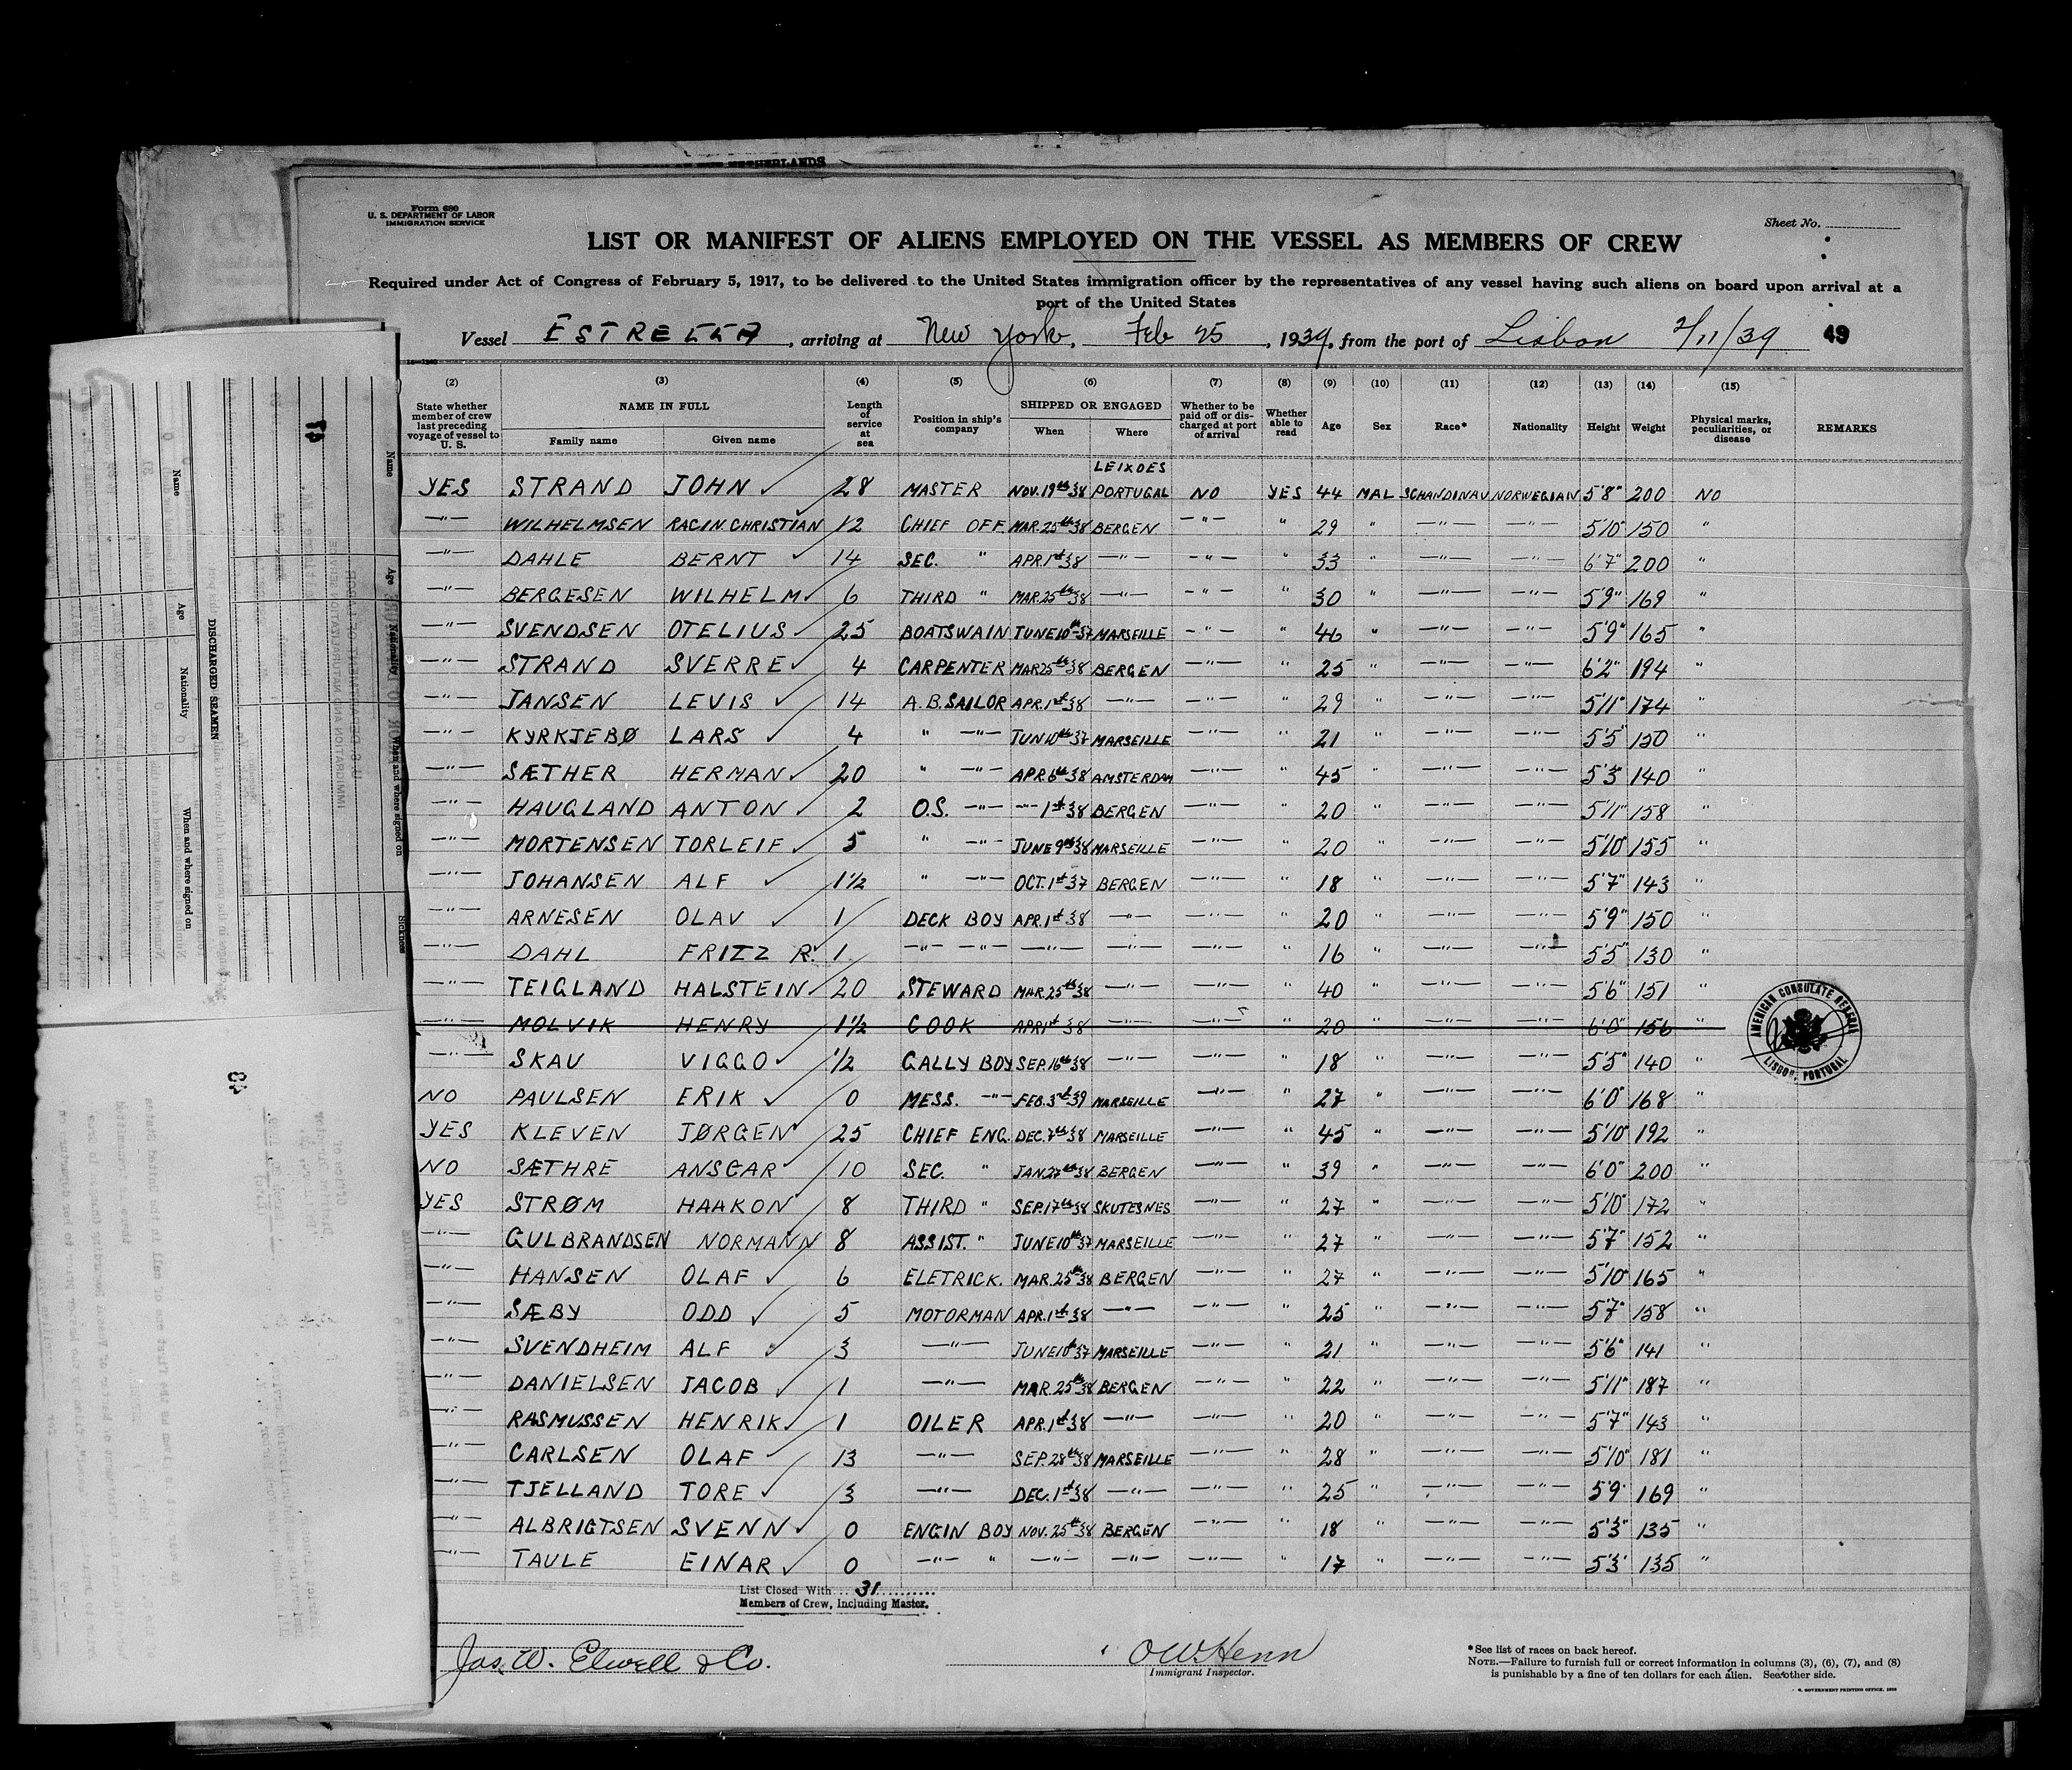 Form 680
U. S. DEPARTMENT OF LABOR
IMMIGRATION SERVICE
Sheet No.
LIST OR MANIFEST OF ALIENS EMPLOYED ON THE VESSEL AS MEMBERS OF CREW
Required under Act of Congress of February 5, 1917, to be delivered to the United States immigration officer by the representatives of any vessel having such aliens on board upon arrival at a
port of the United States
Vessel ESTRELLA, arriving at New York, Feb 25, 1939, from the port of Lisbon 2/11/39 49
(2) (3) (4) (5) (6) (7) (8) (9) (10) (11) (12) (13) (14) (15)
State whether member of crew last preceding voyage of vessel to U. S. NAME IN FULL Family name Given name Length of service at sea Position in ship's company SHIPPED OR ENGAGED When Where Whether to be paid off or discharged at port of arrival Whether able to read Age Sex Race* Nationality Height Weight Physical marks, peculiarities, or disease REMARKS
LEIXOES
YES STRAND JOHN 28 MASTER NOV. 19th 38 PORTUGAL NO YES 44 MAL SCHANDINAV NORWEGIAN 5'8" 200 NO
—"— WILHELMSEN RAGN. CHRISTIAN 12 CHIEF OFF. MAR. 25th 38 BERGEN —"— " 29 " —"— —"— 5'10" 150 "
—"— DAHLE BERNT 14 SEC. " APR. 1st 38 —"— —"— " 33 " —"— —"— 6'7" 200 "
—"— BERGESEN WILHELM 6 THIRD " MAR. 25th 38 —"— —"— " 30 " —"— —"— 5'9" 169 "
—"— SVENDSEN OTELIUS 25 BOATSWAIN JUNE 10th 37 MARSEILLE —"— " 46 " —"— —"— 5'9" 165 "
—"— STRAND SVERRE 4 CARPENTER MAR 25th 38 BERGEN —"— " 25 " —"— —"— 6'2" 194 "
—"— JANSEN LEVIS 14 A.B. SAILOR APR. 1st 38 —"— —"— " 29 " —"— —"— 5'11" 174 "
—"— KYRKJEBØ LARS 4 " —"— JUN 10th 37 MARSEILLE —"— " 21 " —"— —"— 5'5" 150 "
—"— SÆTHER HERMAN 20 " —"— APR. 6th 38 AMSTERDAM —"— " 45 " —"— —"— 5'3" 140 "
—"— HAUGLAND ANTON 2 O.S. —"— —"— 1st 38 BERGEN —"— " 20 " —"— —"— 5'11" 158 "
—"— MORTENSEN TORLEIF 5 " —"— JUNE 9th 38 MARSEILLE —"— " 20 " —"— —"— 5'10" 155 "
—"— JOHANSEN ALF 1½ " —"— OCT. 1st 37 BERGEN —"— " 18 " —"— —"— 5'7" 143 "
—"— ARNESEN OLAV 1 DECK BOY APR. 1st 38 —"— —"— " 20 " —"— —"— 5'9" 150 "
—"— DAHL FRITZ R. 1 —"— —"— —"— —"— —"— " 16 " —"— —"— 5'5" 130 "
—"— TEIGLAND HALSTEIN 20 STEWARD MAR. 25th 38 —"— —"— " 40 " —"— —"— 5'6" 151 "
—"— MOLVIK HENRY 1½ COOK APR 1st 38 —"— —"— " 20 " —"— —"— 6'0" 156 "
—"— SKAU VIGGO ½ GALLY BOY SEP. 16th 38 —"— —"— " 18 " —"— —"— 5'5" 140 "
NO PAULSEN ERIK 0 MESS. —"— FEB. 3rd 39 MARSEILLE —"— " 27 " —"— —"— 6'0" 168 "
YES KLEVEN JØRGEN 25 CHIEF ENG. DEC. 7th 38 MARSEILLE —"— " 45 " —"— —"— 5'10" 192 "
NO SÆTHRE ANSGAR 10 SEC. " JAN. 27th 38 BERGEN —"— " 39 " —"— —"— 6'0" 200 "
YES STRØM HAAKON 8 THIRD " SEP. 17th 38 SKUTESNES —"— " 27 " —"— —"— 5'10" 172 "
—"— GULBRANDSEN NORMANN 8 ASSIST. " JUNE 10th 37 MARSEILLE —"— " 27 " —"— —"— 5'7" 152 "
—"— HANSEN OLAF 6 ELETRICK. MAR. 25th 38 BERGEN —"— " 27 " —"— —"— 5'10" 165 "
—"— SÆBY ODD 5 MOTORMAN APR. 1st 38 —"— —"— " 25 " —"— —"— 5'7" 158 "
—"— SVENDHEIM ALF 3 —"— JUNE 10th 37 MARSEILLE —"— " 21 " —"— —"— 5'6" 141 "
—"— DANIELSEN JACOB 1 —"— MAR. 25th 38 BERGEN —"— " 22 " —"— —"— 5'11" 187 "
—"— RASMUSSEN HENRIK 1 OILER APR. 1st 38 —"— —"— " 20 " —"— —"— 5'7" 143 "
—"— CARLSEN OLAF 13 —"— SEP. 28th 38 MARSEILLE —"— " 28 " —"— —"— 5'10" 181 "
—"— TJELLAND TORE 3 —"— DEC. 1st 38 —"— —"— " 25 " —"— —"— 5'9 169 "
—"— ALBRIGTSEN SVENN 0 ENGIN BOY NOV. 25th 38 BERGEN —"— " 18 " —"— —"— 5'3" 135 "
—"— TAULE EINAR 0 —"— " —"— —"— —"— " 17 " —"— —"— 5'3' 135 "
AMERICAN CONSULATE GENERAL
LISBON, PORTUGAL
List Closed With 31
Members of Crew, Including Master.
Jas. W. Elwell & Co.
OW Henn
Immigrant Inspector.
*See list of races on back hereof.
NOTE.—Failure to furnish full or correct information in columns (3), (6), (7), and (8)
is punishable by a fine of ten dollars for each alien. See other side.
DISCHARGED SEAMEN
Name Age Nationality When and where signed on